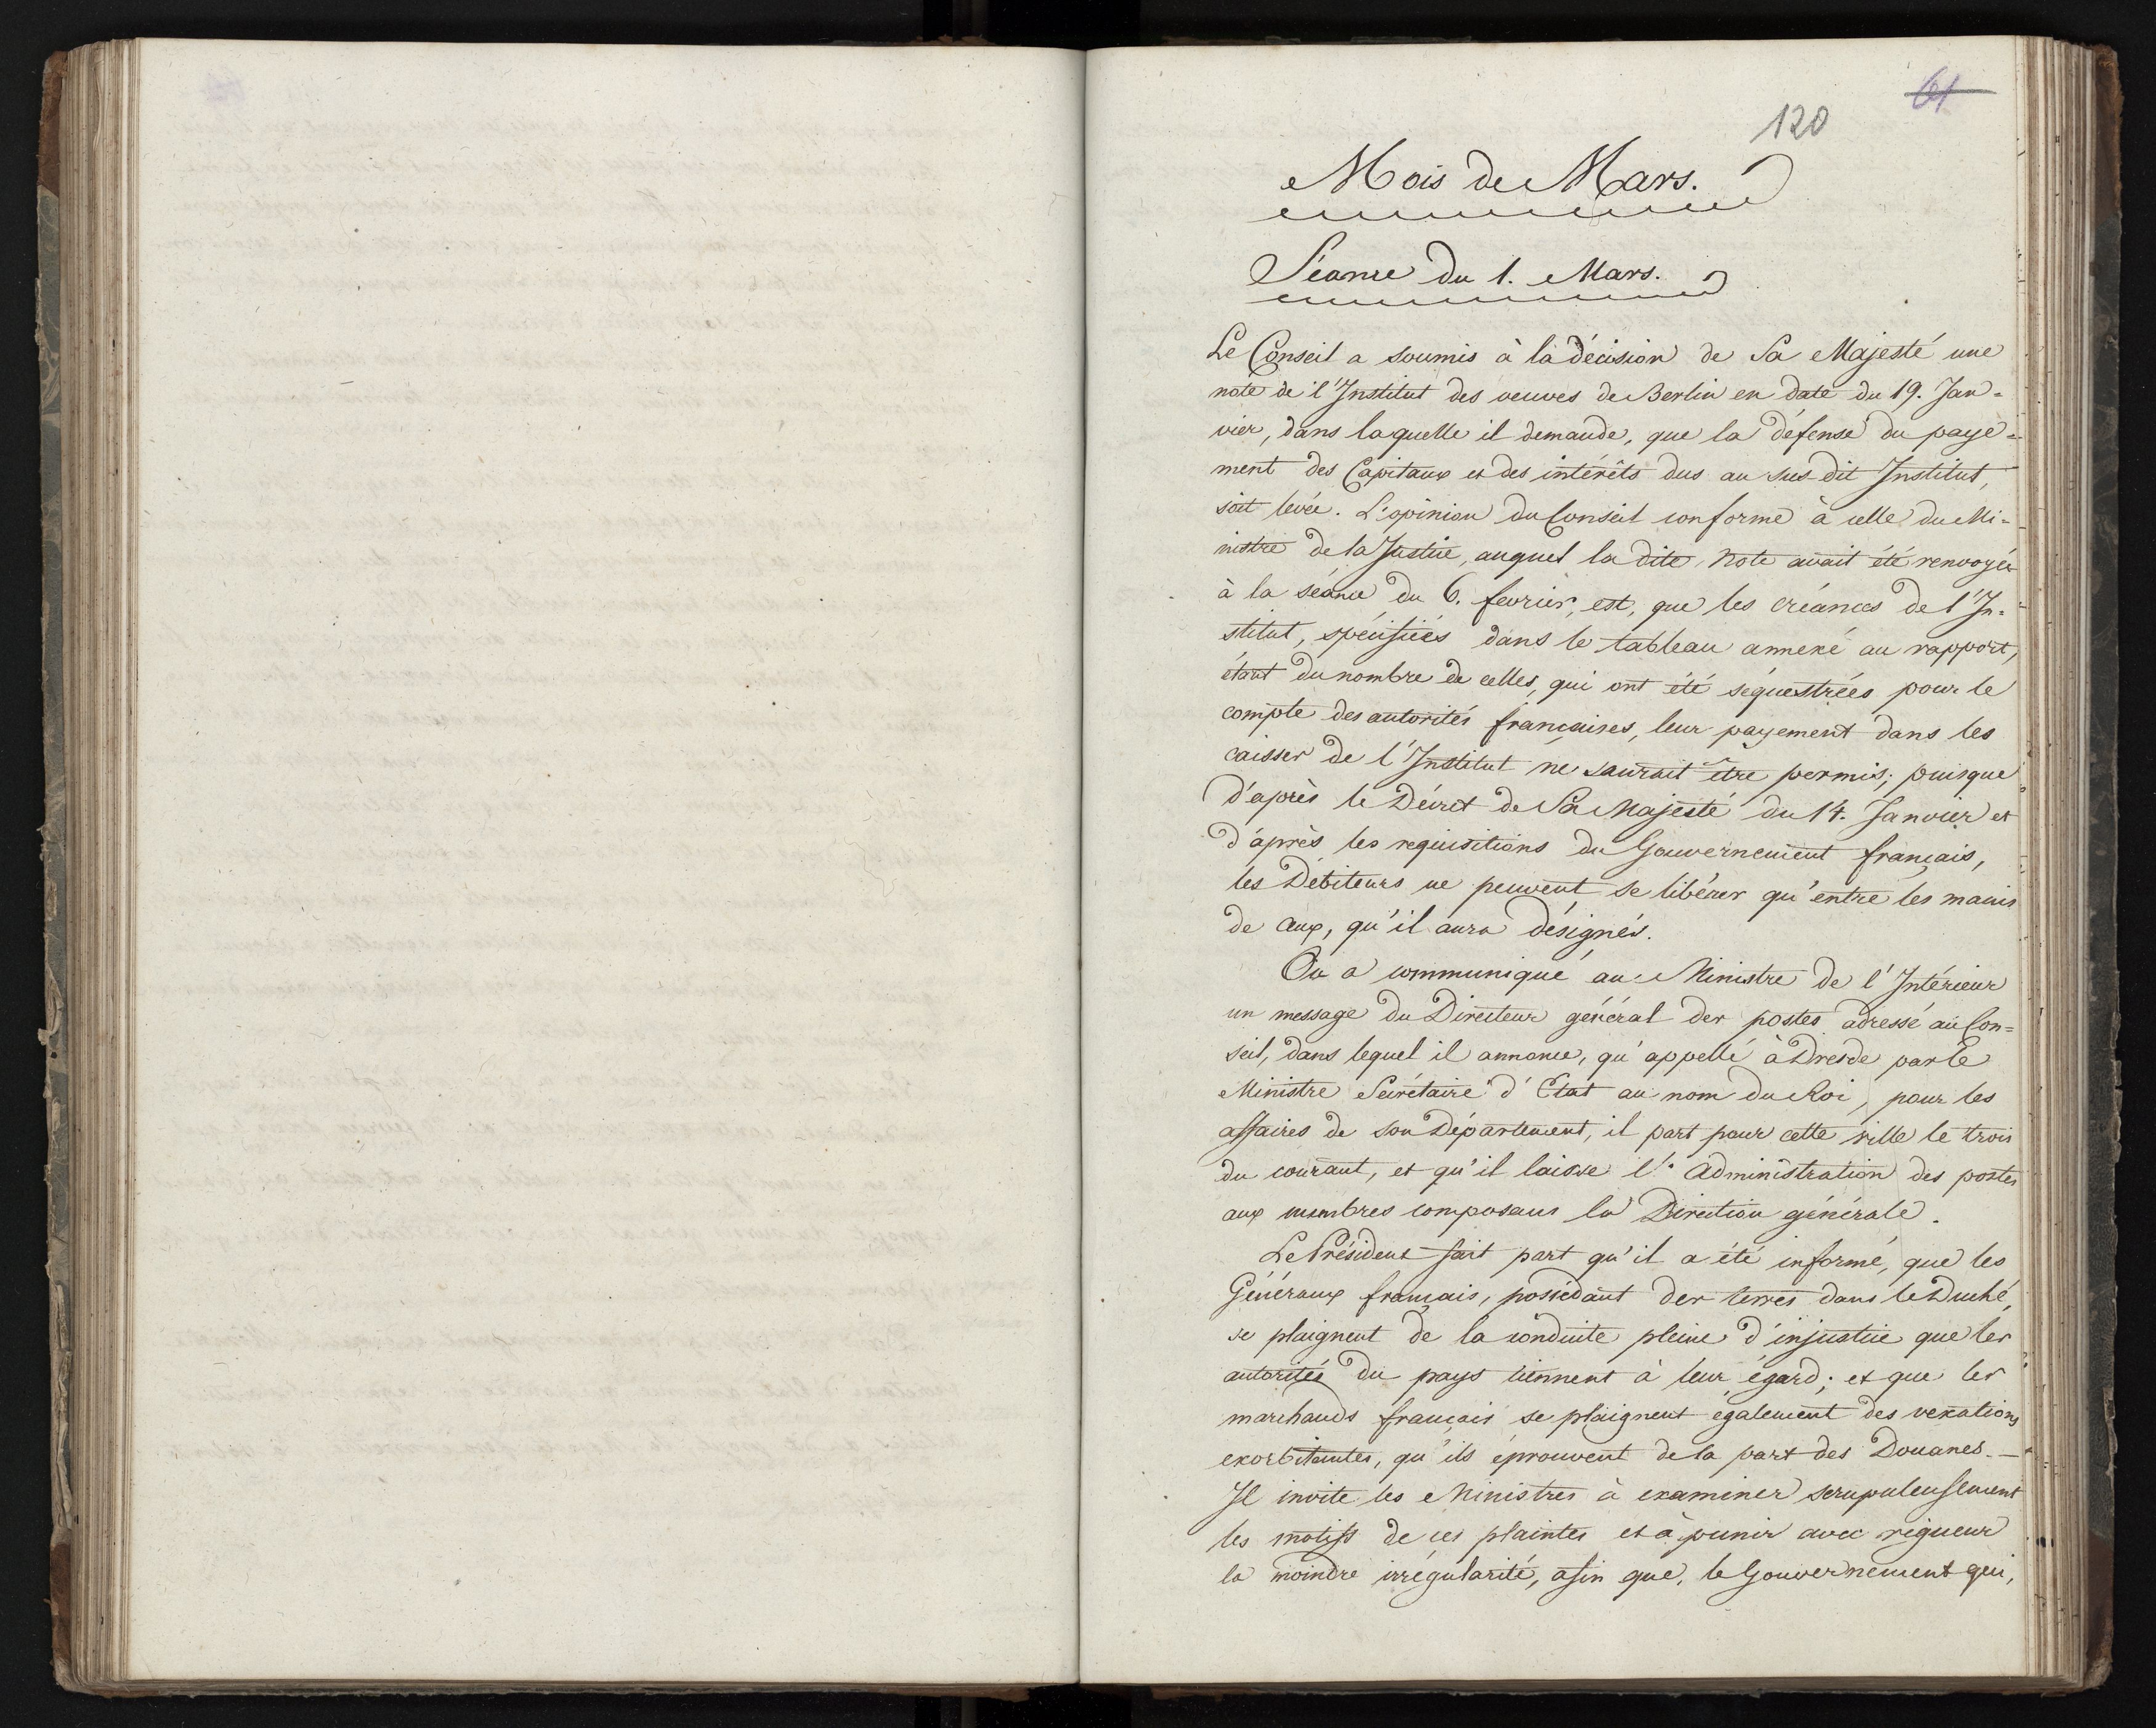 61
120
Mois de Mars.
Séance du 1. Mars.
Le Conseil a soumis à la décision de Sa Majesté une
note de l'Institut des veuves de Berlin en date du 19. Jan=
vier, dans laquelle il demande, que la défense du paye=
ment des Capitaux et des intérêts dus au sus-dit Institut,
soit levée. L'opinion du Conseil conforme à celle du Mi=
nistre de la Justice, auquel la dite Note avait été renvoyée
à la séance du 6. fevrier, est, que les créances de l'In=
stitut, spécifiées dans le tableau annexé au rapport,
étant du nombre de celles, qui ont été séquestrées pour le
compte des autorités françaises, leur payement dans les
caisses de l'Institut ne saurait être permis; puisque
d'après le Décret de Sa Majesté du 14. Janvier et
d'après les requisitions du Gouvernement français,
les Débiteurs ne peuvent se libérer qu'entre les mains
de ceux, qu'il aura désignés.
On a communiqué au Ministre de l'Intérieur
un message du Directeur général des postes adressé au Con=
seil, dans lequel il annonce, qu'appellé à Dresde par le
Ministre Secrétaire d'Etat au nom du Roi, pour les
affaires de son Département, il part pour cette ville le trois
du courant, et qu'il laisse l'Administration des postes
aux membres composans la Direction générale.
Le Président fait part qu'il a été informé, que les
Généraux français, possédant des terres dans le Duché,
se plaignent de la conduite pleine d'injustice que les
autorités du pays tiennent à leur égard; et que les
marchands français se plaignent également des vexations
exorbitantes, qu'ils éprouvent de la part des Douanes. —
Il invite les Ministres à examiner scrupuleusement
les motifs de ces plaintes et à punir avec rigueur
la moindre irrégularité, afin que, le Gouvernement qui,